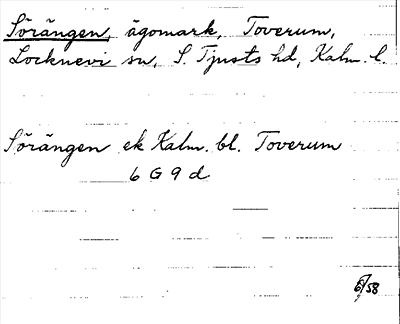 Sörängen, ägomark, Toverum,
Locknevi sn, S. Tjusts hd, Kalm. l.
Sörängen ek Kalm. bl. Toverum
6 G 9 d
6/58